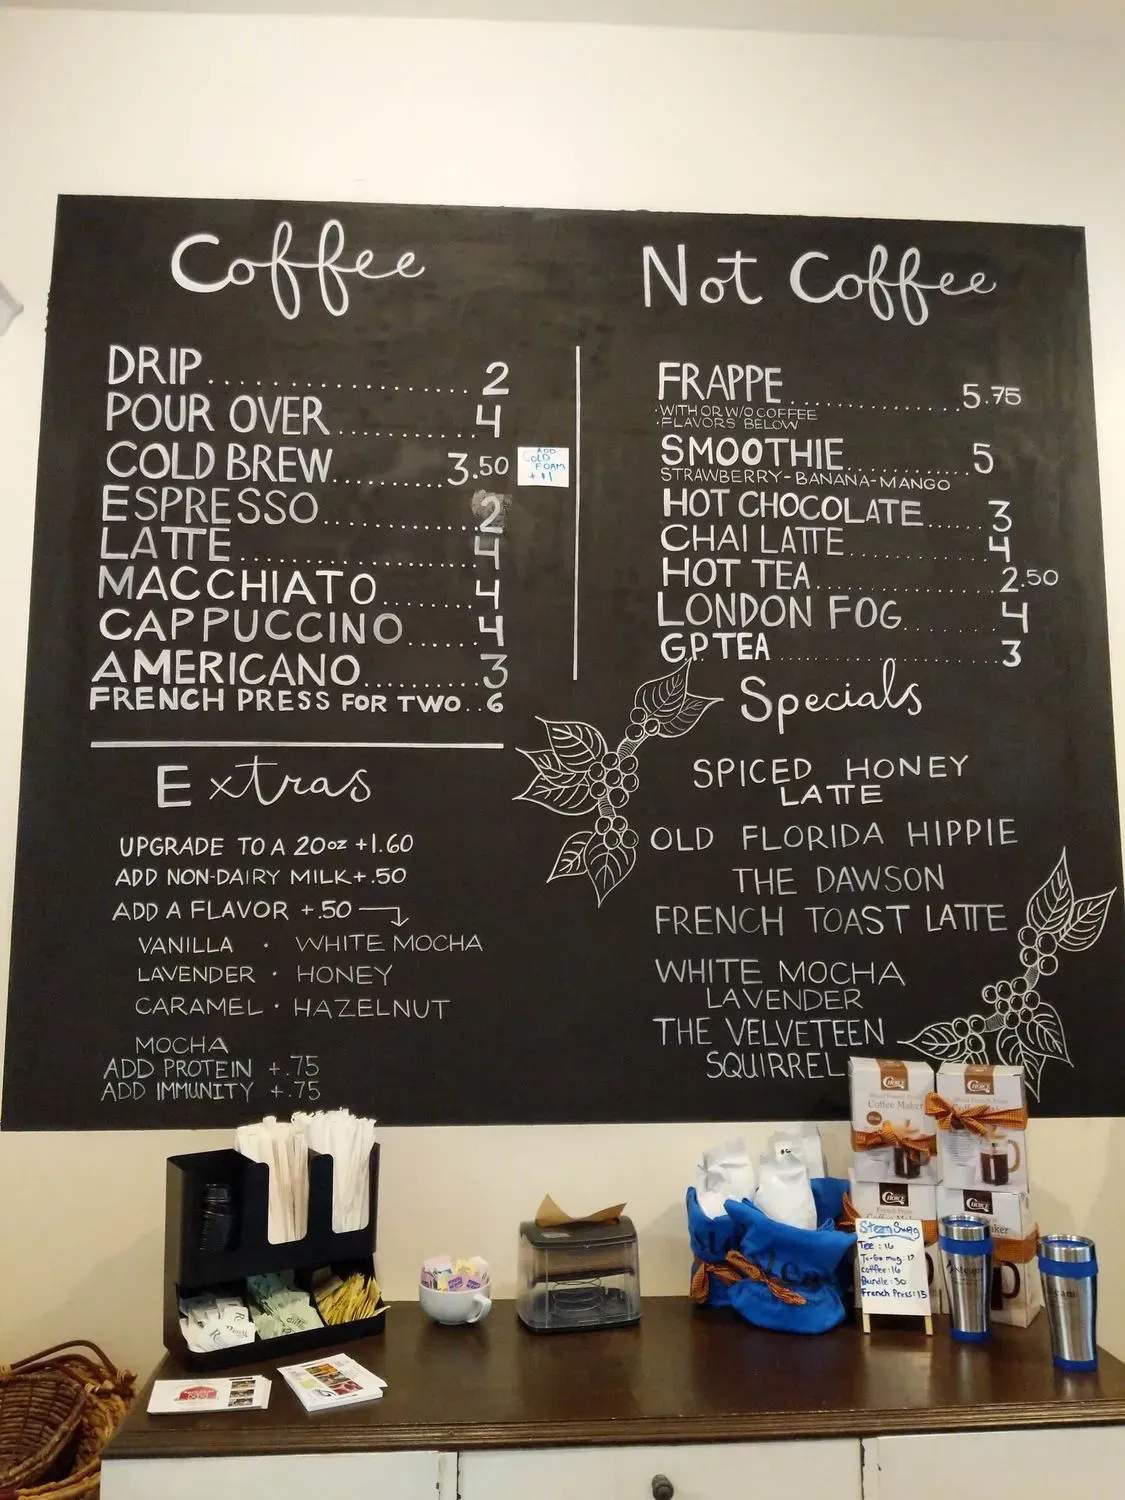 Coffee
DRIP 2
POUR OVER 4
COLD BREW 3.50
ADD
COLD
FOAM
+ $1
ESPRESSO 2
LATTE 4
MACCHIATO 4
CAPPUCCINO 4
AMERICANO 3
FRENCH PRESS FOR TWO 6
Extras
UPGRADE TO A 20oz +1.60
ADD NON-DAIRY MILK +.50
ADD A FLAVOR +.50
VANILLA · WHITE MOCHA
LAVENDER · HONEY
CARAMEL · HAZELNUT
MOCHA
ADD PROTEIN +.75
ADD IMMUNITY +.75
Not Coffee
FRAPPE 5.75
·WITH OR W/O COFFEE
·FLAVORS BELOW
SMOOTHIE 5
STRAWBERRY-BANANA-MANGO
HOT CHOCOLATE 3
CHAI LATTE 4
HOT TEA 2.50
LONDON FOG 4
GP TEA 3
Specials
SPICED HONEY
LATTE
OLD FLORIDA HIPPIE
THE DAWSON
FRENCH TOAST LATTE
WHITE MOCHA
LAVENDER
THE VELVETEEN
SQUIRREL
CHOICE
Coffee Maker
CHOICE
French Press
Steam Swag
Tee: 16
To-Go mug: 17
coffee: 16
Bundle: 30
French Press: 15
steam